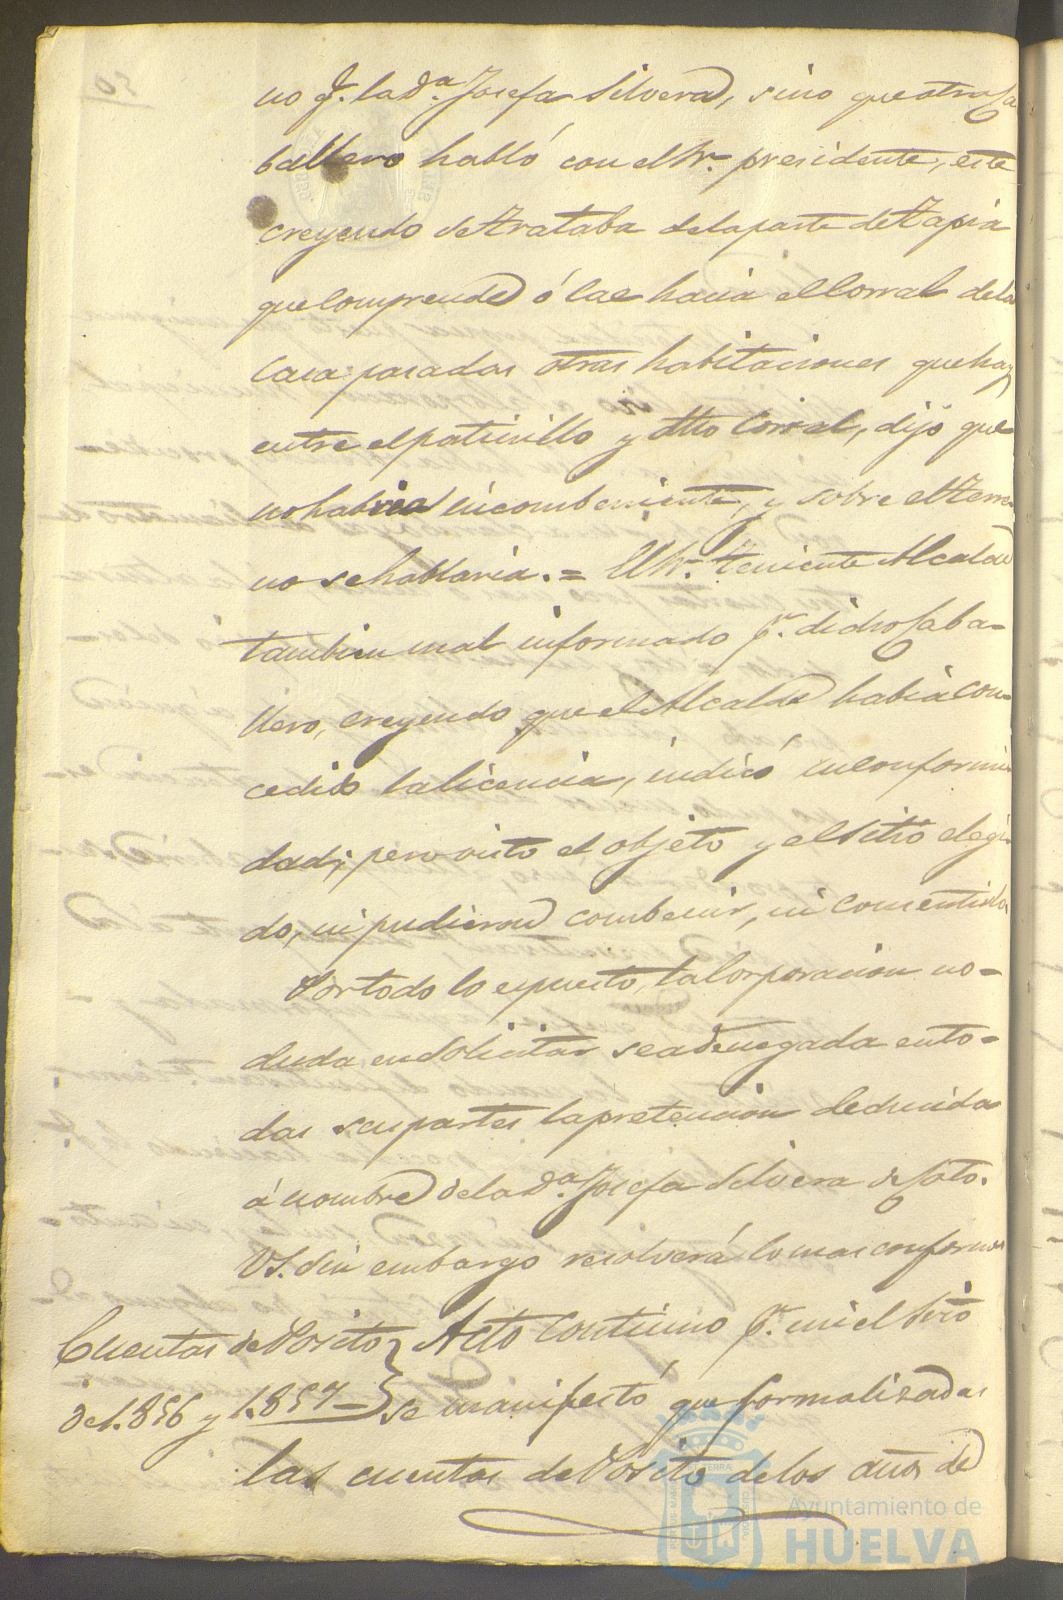 no p.r la d.a Josefa Silvera, sino que otro Ca
ballero habló con el Sr. presidente, este
creyendo se trataba de la parte de tapia
que comprende ó cae hacia el Corral de la
Casa pasadas otras habitaciones que hay
entre el patinillo y dho Corral, dijo que
no habria incombeniente, y sobre el terre
no se hablaria. = El Sr. Teniente Alcalde
tambien mal informado p.r dicho Caba-
llero, creyendo que el Alcalde habia con-
cedido la licencia, indicó su conformi
dad; pero visto el objeto y el sitio elegi
do, ni pudieron combenir, ni consentirlo
Por todo lo espuesto, la Corporacion no-
duda en solicitar sea denegada en to-
das sus partes la pretencion deducida
á nombre de la d.a Josefa Silvera de Soto.
VS. sin embargo resolverá lo mas conforme
Cuentas de Posito
de 1.856 y 1.857
Acto Continuo p.r mi el Srio
se manifestó que formalizadas
las cuentas de Posito de los años de
Ayuntamiento de
HUELVA